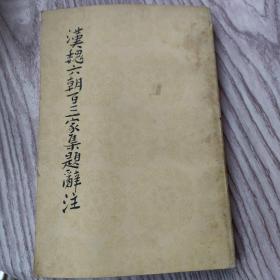 漢魏六朝百三家集題辭注